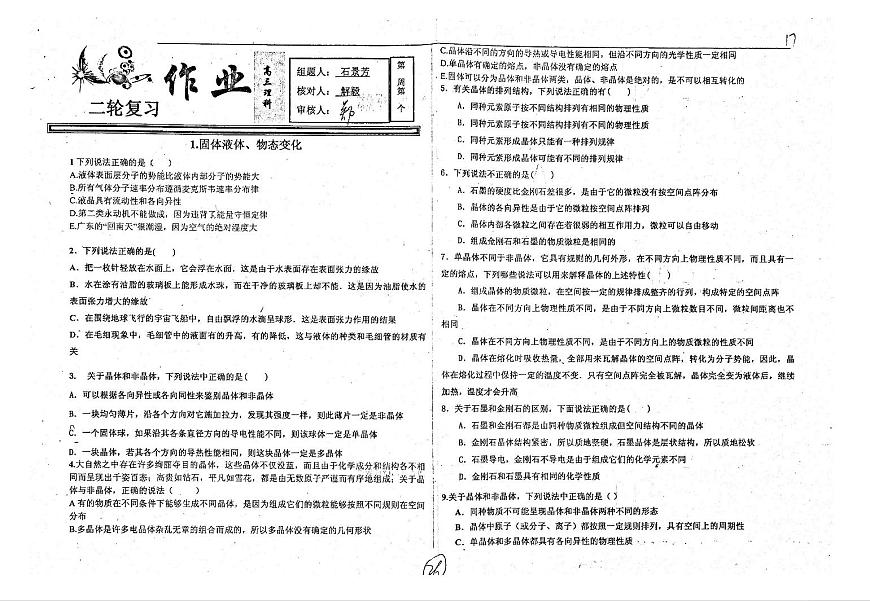 17
作业
高三理科
二轮复习
组题人： 石景芳
核对人： 解毅
审核人： 郑
第 周第 个
1.固体液体、物态变化
1 下列说法正确的是（ ）
A.液体表面层分子的势能比液体内部分子的势能大
B.所有气体分子速率分布遵循麦克斯韦速率分布律
C.液晶具有流动性和各向异性
D.第二类永动机不能做成，因为违背了能量守恒定律
E.广东的“回南天”很潮湿，因为空气的绝对湿度大
2．下列说法正确的是( )
A．把一枚针轻放在水面上，它会浮在水面．这是由于水表面存在表面张力的缘故
B．水在涂有油脂的玻璃板上能形成水珠，而在干净的玻璃板上却不能．这是因为油脂使水的
表面张力增大的缘故
C．在围绕地球飞行的宇宙飞船中，自由飘浮的水滴呈球形．这是表面张力作用的结果
D．在毛细现象中，毛细管中的液面有的升高，有的降低，这与液体的种类和毛细管的材质有
关
3． 关于晶体和非晶体，下列说法中正确的是( )
A．可以根据各向异性或各向同性来鉴别晶体和非晶体
B．一块均匀薄片，沿各个方向对它施加拉力，发现其强度一样，则此薄片一定是非晶体
C．一个固体球，如果沿其各条直径方向的导电性能不同，则该球体一定是单晶体
D．一块晶体，若其各个方向的导热性能相同，则这块晶体一定是多晶体
4.大自然之中存在许多绚丽夺目的晶体，这些晶体不仅没蓝，而且由于化学成分和结构各不相
同而呈现出千姿百态；高贵如钻石，平凡如雪花，都是由无数原子严谨而有序地组成；关于晶
体与非晶体，正确的说法（ ）
A 有的物质在不同条件下能够生成不同晶体，是因为组成它们的微粒能够按照不同规则在空间
分布
B.多晶体是许多电晶体杂乱无章的组合而成的，所以多晶体没有确定的几何形状
C.晶体沿不同的方向的导热或导电性能相同，但沿不同方向的光学性质一定相同
D.单晶体有确定的熔点，非晶体没有确定的熔点
E.固体可以分为晶体和非晶体两类，晶体、非晶体是绝对的，是不可以相互转化的
5．有关晶体的排列结构，下列说法正确的有( )
A．同种元素原子按不同结构排列有相同的物理性质
B．同种元素原子按不同结构排列有不同的物理性质
C．同种元素形成晶体只能有一种排列规律
D．同种元素形成晶体可能有不同的排列规律
6．下列说法不正确的是( )
A．石墨的硬度比金刚石差很多，是由于它的微粒没有按空间点阵分布
B．晶体的各向异性是由于它的微粒按空间点阵排列
C．晶体内部各微粒之间存在着很弱的相互作用力，微粒可以自由移动
D．组成金刚石和石墨的物质微粒是相同的
7．单晶体不同于非晶体，它具有规则的几何外形，在不同方向上物理性质不同，而且具有一
定的熔点，下列哪些说法可以用来解释晶体的上述特性( )
A．组成晶体的物质微粒，在空间按一定的规律排成整齐的行列，构成特定的空间点阵
B．晶体在不同方向上物理性质不同，是由于不同方向上微粒数目不同，微粒间距离也不
相同
C．晶体在不同方向上物理性质不同，是由于不同方向上的物质微粒的性质不同
D．晶体在熔化时吸收热量，全部用来瓦解晶体的空间点阵，转化为分子势能，因此，晶
体在熔化过程中保持一定的温度不变．只有空间点阵完全被瓦解，晶体完全变为液体后，继续
加热，温度才会升高
8．关于石墨和金刚石的区别，下面说法正确的是( )
A．石墨和金刚石都是由同种物质微粒组成但空间结构不同的晶体
B．金刚石晶体结构紧密，所以质地坚硬，石墨晶体是层状结构，所以质地松软
C．石墨导电，金刚石不导电是由于组成它们的化学元素不同
D．金刚石和石墨具有相同的化学性质
9.关于晶体和非晶体，下列说法中正确的是（）
A．同种物质不可能呈现晶体和非晶体两种不同的形态
B．晶体中原子（或分子、离子）都按照一定规则排列，具有空间上的周期性
C．单晶体和多晶体都具有各向异性的物理性质